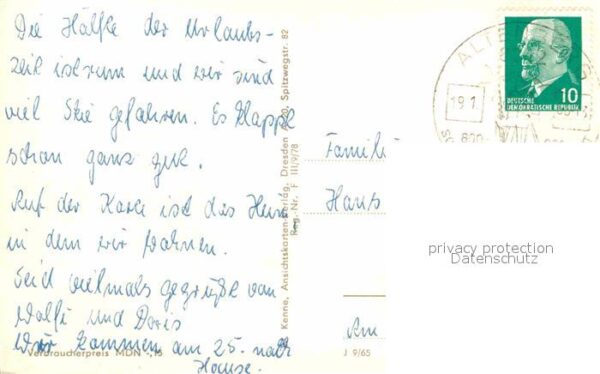 Die Hälfte der Urlaubs-
zeit ist rum und wir sind
viel Ski gefahren. Es klappt
schon ganz gut.
Auf der Karte ist das Heim
in dem wir wohnen.
Seid vielmals gegrüßt von
Wolfi und Doris
Wir kommen am 25. nach
Hause.
Verbraucherpreis MDN -,15
Kenne, Ansichtskarten-Verlag, Dresden Spitzwegstr. 82
Reg.-Nr. F III/9/78
DEUTSCHE
DEMOKRATISCHE REPUBLIK
10
19.1
Familie
Hans
privacy protection
Datenschutz
Am
J 9/65